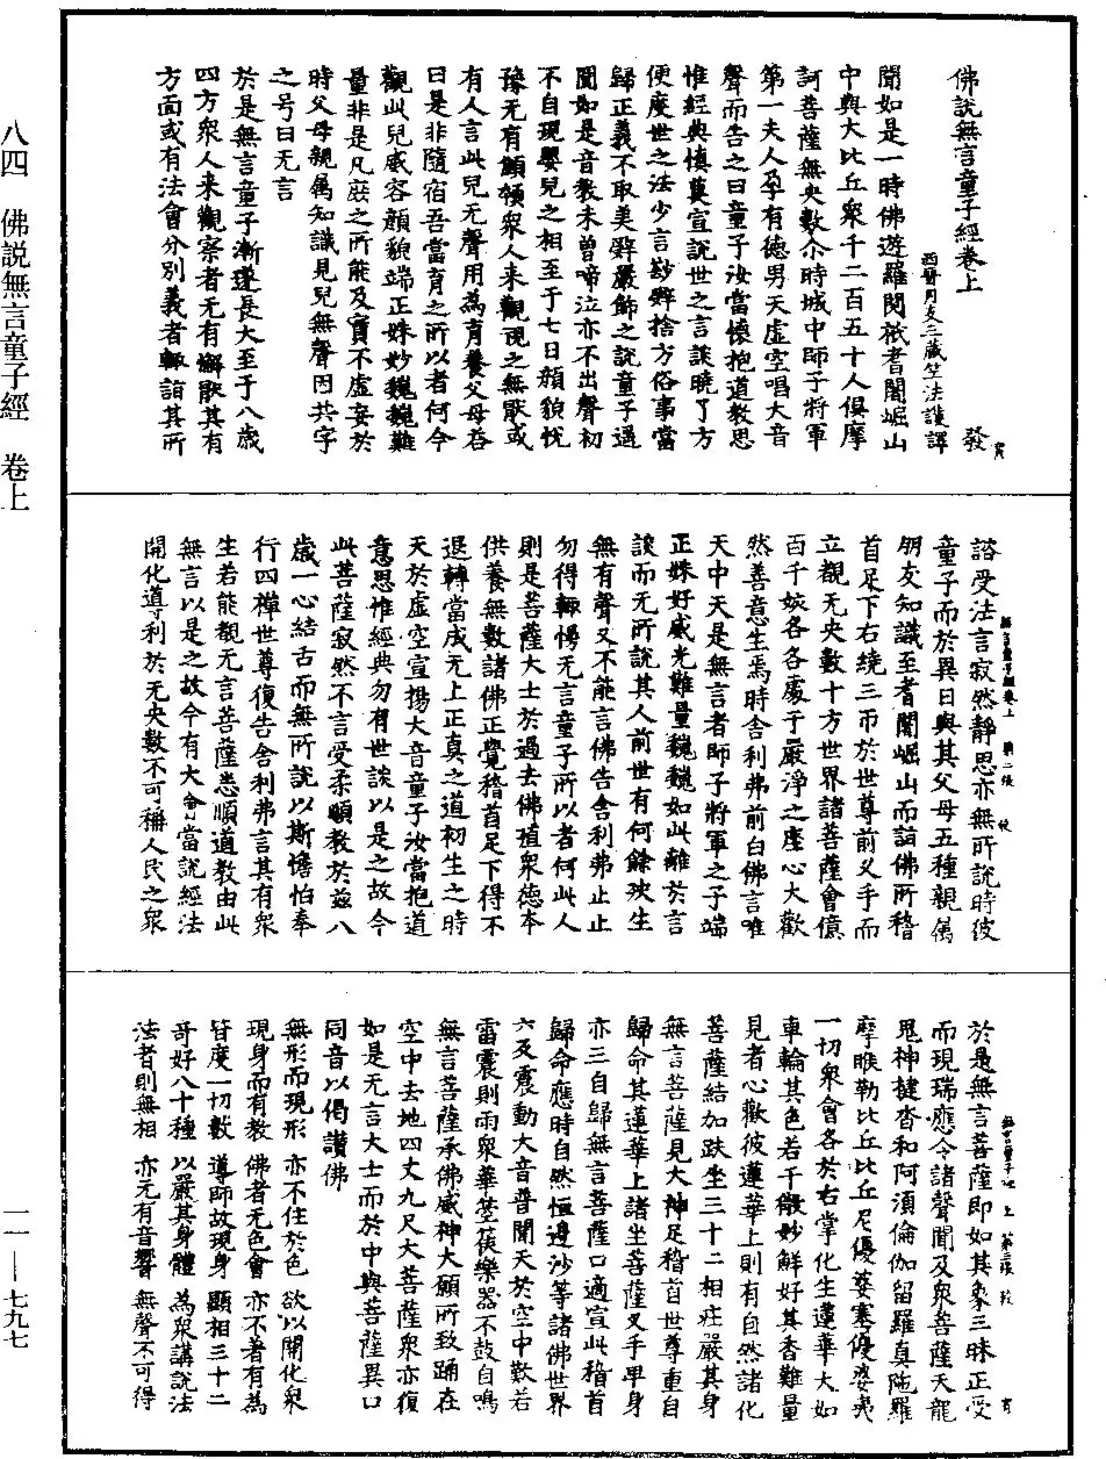 佛說無言童子經卷上 發
西晉月支三藏竺法護譯
聞如是一時佛遊羅閱祇耆闍崛山
中與大比丘衆千二百五十人俱摩
訶菩薩無央數尒時城中師子將軍
第一夫人孕有德男天虛空唱大音
聲而告之曰童子汝當懷抱道教思
惟經典慎莫宣說世之言談曉了方
便度世之法少言尠辝捨方俗事當
歸正義不取美辝嚴飾之說童子適
聞如是音教未曾啼泣亦不出聲初
不自現嬰兒之相至于七日顏貌悅
豫无有顦顇衆人来觀視之無猒或
有人言此兒无聲用為育養父母荅
曰是非隨宿吾當育之所以者何今
觀此兒威容顏貌端正姝妙巍巍難
量非是凡庶之所能及實不虛妄於
時父母親属知識見兒無聲因共字
之号曰无言
於是無言童子漸遂長大至于八歲
四方衆人来觀察者无有懈猒其有
方面或有法會分別義者輙詣其所
諮受法言寂然靜思亦無所說時彼
童子而於異日與其父母五種親属
朋友知識至耆闍崛山而詣佛所稽
首足下右繞三帀於世尊前叉手而
立觀无央數十方世界諸菩薩會億
百千姟各各處于嚴淨之座心大歡
然善意生焉時舍利弗前白佛言唯
天中天是無言者師子將軍之子端
正姝好威光難量巍巍如此離於言
談而无所說其人前世有何餘殃生
無有聲又不能言佛告舍利弗止止
勿得輙慢无言童子所以者何此人
則是菩薩大士於過去佛殖衆德本
供養無數諸佛正覺稽首足下得不
退轉當成无上正真之道初生之時
天於虛空宣揚大音童子汝當抱道
意思惟經典勿有世談以是之故今
此菩薩寂然不言受柔順教於茲八
歲一心結舌而無所說以斯憺怕奉
行四禪世尊復告舍利弗言其有衆
生若能觀无言菩薩悉順道教由此
無言以是之故今有大會當說經法
開化導利於无央數不可稱人民之衆
於是無言菩薩即如其象三昧正受
而現瑞應令諸聲聞及衆菩薩天龍
鬼神揵沓和阿須倫伽留羅真陁羅
摩睺勒比丘比丘尼優婆塞優婆夷
一切衆會各於右掌化生蓮華大如
車輪其色若干微妙鮮好其香難量
見者心歡彼蓮華上則有自然諸化
菩薩結加趺坐三十二相莊嚴其身
無言菩薩見大神足稽首世尊重自
歸命其蓮華上諸坐菩薩叉手卑身
亦三自歸無言菩薩口適宣此稽首
歸命應時自然恒邊沙等諸佛世界
六反震動大音普聞天於空中歎若
雷震則雨衆華箜篌樂器不鼓自鳴
無言菩薩承佛威神大願所致踊在
空中去地四丈九尺大菩薩衆亦復
如是无言大士而於中與菩薩異口
同音以偈讚佛
無形而現形 亦不住於色 欲以開化衆
現身而有教 佛者无色會 亦不著有為
皆度一切數 導師故現身 顯相三十二
奇好八十種 以嚴其身體 為衆講說法
法者則無相 亦元有音響 無聲不可得
八四 佛說無言童子經 卷上
一一—七九七